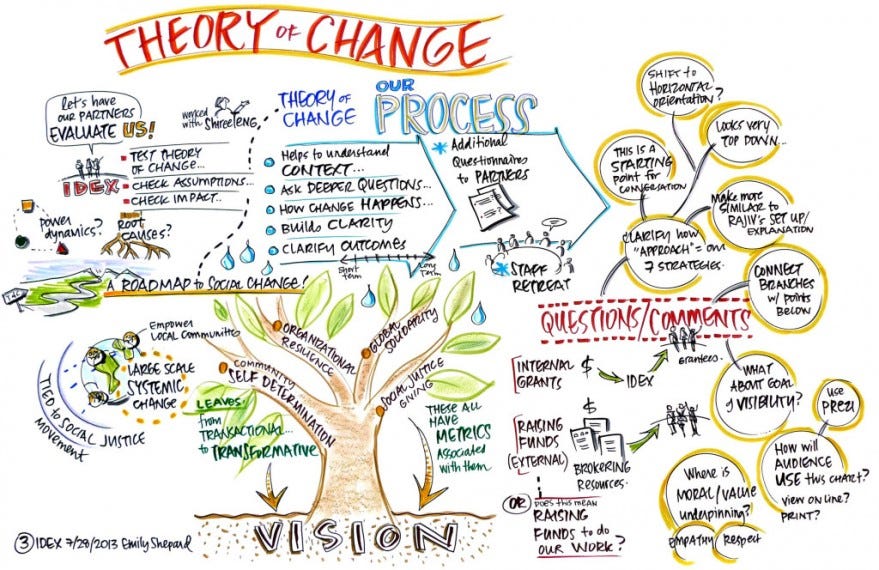 THEORY OF CHANGE
let's have
our PARTNERS
EVALUATE US!
worked
with SHREETENG
IDEX
TEST THEORY
OF CHANGE...
CHECK ASSUMPTIONS...
CHECK IMPACT...
POWER
dynamics?
ROOT
CAUSES?
A ROADMAP to SOCIAL CHANGE!
THEORY of
CHANGE
OUR
PROCESS
Helps to understand
CONTEXT...
ASK DEEPER QUESTIONS...
HOW CHANGE HAPPENS...
BUILDS CLARITY
CLARIFY OUTCOMES
Short
term
Long
Term
Additional
Questionnaires
to PARTNERS
STAFF
RETREAT
SHIFT to
HORIZONTAL
ORIENTATION?
LOOKS VERY
TOP DOWN...
THIS IS A
STARTING
POINT for
CONVERSATION
MAKE MORE
SIMILAR to
RAJIV'S SET UP/
EXPLANATION
CLARIFY HOW
"APPROACH" = OUR
7 STRATEGIES.
CONNECT
BRANCHES
w/ POINTS
BELOW
Empower
LOCAL COMMUNITIES
LARGE SCALE
SYSTEMIC
CHANGE
TIED to SOCIAL JUSTICE
MOVEMENT
ORGANIZATIONAL
RESILIENCE
GLOBAL
SOLIDARITY
COMMUNITY
SELF DETERMINATION
SOCIAL JUSTICE
GIVING
LEAVES:
from
TRANSACTIONAL...
to TRANSFORMATIVE
THESE ALL
HAVE
METRICS
ASSOCIATED
with them
VISION
QUESTIONS/COMMENTS
INTERNAL
GRANTS
$
IDEX
Grantees.
RAISING
FUNDS
(EXTERNAL)
$
BROKERING
RESOURCES.
OR
DOES this MEAN
RAISING
FUNDS to do
OUR WORK?
WHAT
ABOUT GOAL
of VISIBILITY?
USE
PREZI
HOW will
AUDIENCE
USE this CHART?
view on line?
PRINT?
Where is
MORAL/VALUE
underpinning?
EMPATHY
Respect
3 IDEX 7/28/2013 Emily Shepard